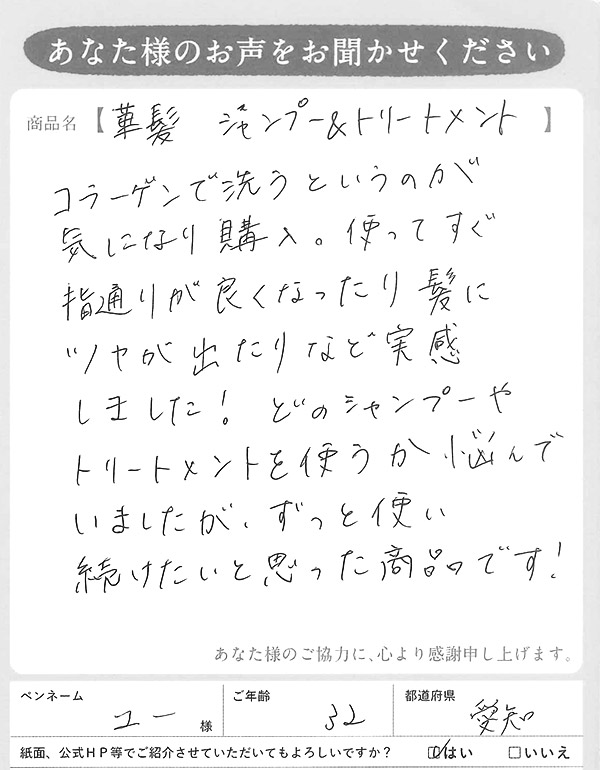 あなた様のお声をお聞かせください
商品名【華髪 シャンプー&トリートメント】
コラーゲンで洗うというのが
気になり購入。使ってすぐ
指通りが良くなったり髪に
ツヤが出たりなど実感
しました！どのシャンプーや
トリートメントを使うか悩んで
いましたが、ずっと使い
続けたいと思った商品です！
あなた様のご協力に、心より感謝申し上げます。
ペンネーム ユー 様 ご年齢 32 都道府県 愛知
紙面、公式HP等でご紹介させていただいてもよろしいですか？ ☑はい □いいえ